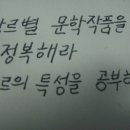 르별 문학작품을
정복해라
르의 특성을 공부하